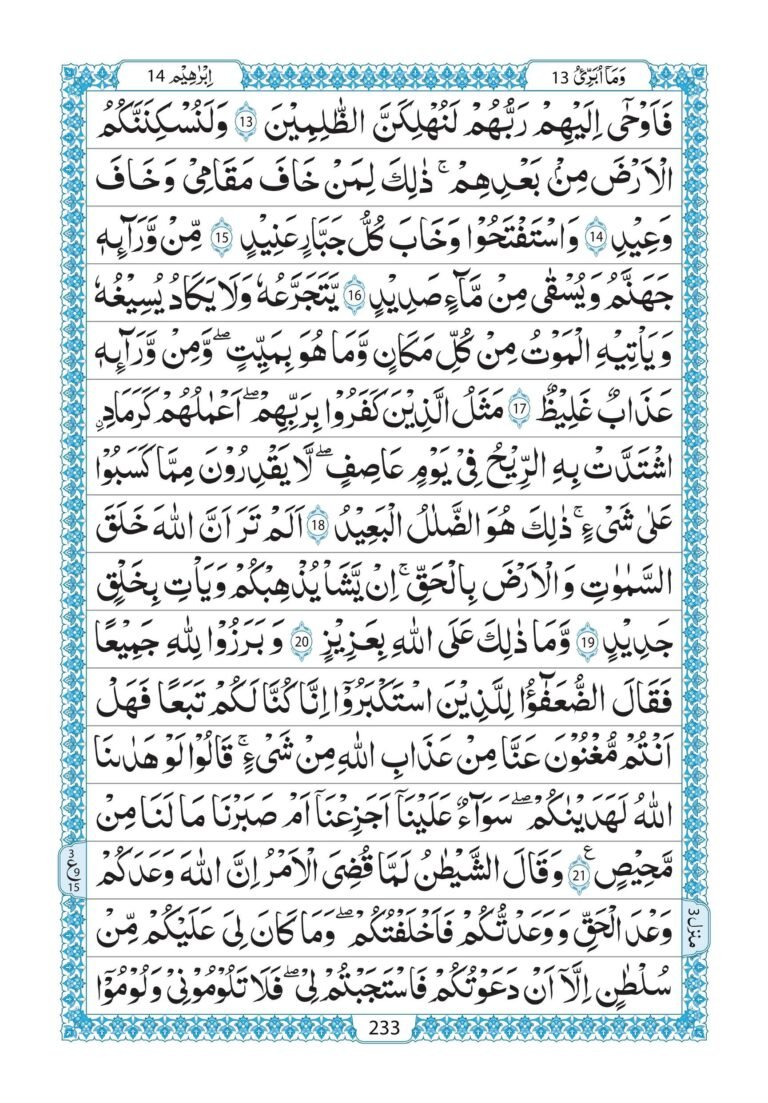 وَمَاۤ اُبَرِّئُ 13
اِبْرٰهِيْم 14
فَاَوْحٰۤى اِلَيْهِمْ رَبُّهُمْ لَنُهْلِكَنَّ الظّٰلِمِيْنَ 13 وَلَنُسْكِنَنَّكُمُ
الْاَرْضَ مِنْۢ بَعْدِهِمْ ۚ ذٰلِكَ لِمَنْ خَافَ مَقَامِيْ وَخَافَ
وَعِيْدِ 14 وَاسْتَفْتَحُوْا وَخَابَ كُلُّ جَبَّارٍ عَنِيْدٍ 15 مِّنْ وَّرَآئِهٖ
جَهَنَّمُ وَيُسْقٰى مِنْ مَّآءٍ صَدِيْدٍ 16 يَّتَجَرَّعُهٗ وَلَا يَكَادُ يُسِيْغُهٗ
وَيَاْتِيْهِ الْمَوْتُ مِنْ كُلِّ مَكَانٍ وَّمَا هُوَ بِمَيِّتٍ ۖ وَمِنْ وَّرَآئِهٖ
عَذَابٌ غَلِيْظٌ 17 مَثَلُ الَّذِيْنَ كَفَرُوْا بِرَبِّهِمْ ۖ اَعْمٰلُهُمْ كَرَمَادِ ۨ
اشْتَدَّتْ بِهِ الرِّيْحُ فِيْ يَوْمٍ عَاصِفٍ ۖ لَا يَقْدِرُوْنَ مِمَّا كَسَبُوْا
عَلٰى شَيْءٍ ۚ ذٰلِكَ هُوَ الضَّلٰلُ الْبَعِيْدُ 18 اَلَمْ تَرَ اَنَّ اللّٰهَ خَلَقَ
السَّمٰوٰتِ وَالْاَرْضَ بِالْحَقِّ ۚ اِنْ يَّشَاْ يُذْهِبْكُمْ وَيَاْتِ بِخَلْقٍ
جَدِيْدٍ 19 وَّمَا ذٰلِكَ عَلَى اللّٰهِ بِعَزِيْزٍ 20 وَبَرَزُوْا لِلّٰهِ جَمِيْعًا
فَقَالَ الضُّعَفٰٓؤُا لِلَّذِيْنَ اسْتَكْبَرُوْۤا اِنَّا كُنَّا لَكُمْ تَبَعًا فَهَلْ
اَنْتُمْ مُّغْنُوْنَ عَنَّا مِنْ عَذَابِ اللّٰهِ مِنْ شَيْءٍ ۚ قَالُوْا لَوْ هَدٰىنَا
اللّٰهُ لَهَدَيْنٰكُمْ ۖ سَوَآءٌ عَلَيْنَاۤ اَجَزِعْنَاۤ اَمْ صَبَرْنَا مَا لَنَا مِنْ
مَّحِيْصٍ ع 21 وَقَالَ الشَّيْطٰنُ لَمَّا قُضِيَ الْاَمْرُ اِنَّ اللّٰهَ وَعَدَكُمْ
3 ع 9 15
وَعْدَ الْحَقِّ وَوَعَدْتُّكُمْ فَاَخْلَفْتُكُمْ ۖ وَمَا كَانَ لِيَ عَلَيْكُمْ مِّنْ
منزل 3
سُلْطٰنٍ اِلَّاۤ اَنْ دَعَوْتُكُمْ فَاسْتَجَبْتُمْ لِيْ ۖ فَلَا تَلُوْمُوْنِيْ وَلُوْمُوْۤا
233